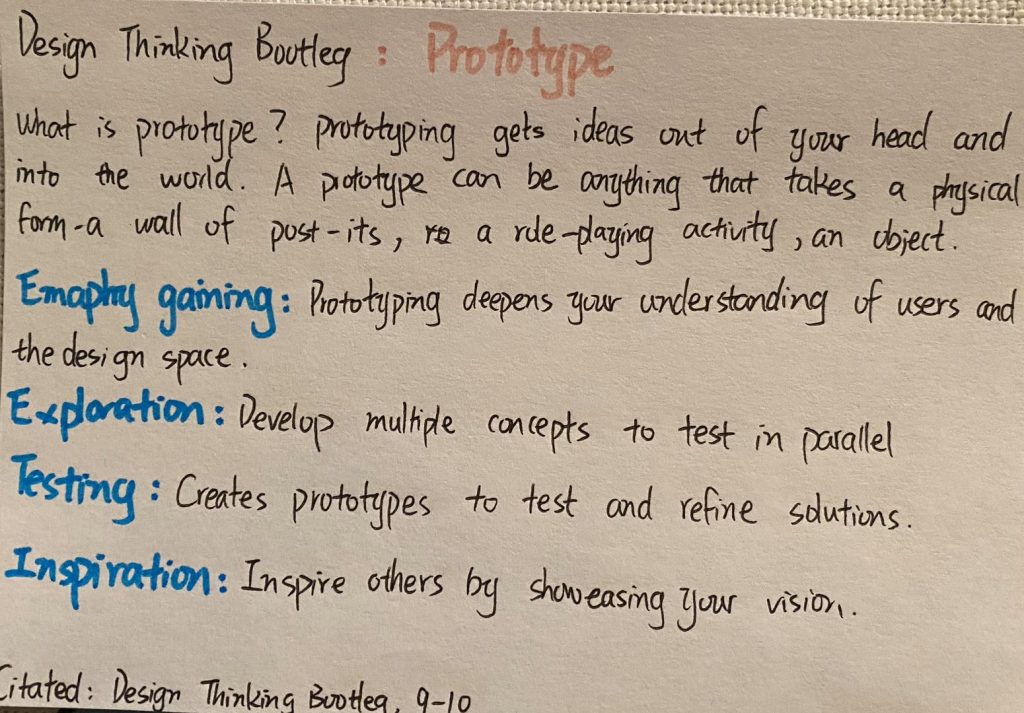 Design Thinking Bootleg : Prototype
What is prototype? prototyping gets ideas out of your head and
into the world. A prototype can be anything that takes a physical
form-a wall of post-its, a role-playing activity, an object.
Emaphy gaining: Prototyping deepens your understanding of users and
the design space.
Exploration: Develop multiple concepts to test in parallel
Testing: Creates prototypes to test and refine solutions.
Inspiration: Inspire others by showeasing your vision.
Citated: Design Thinking Bootleg, 9-10